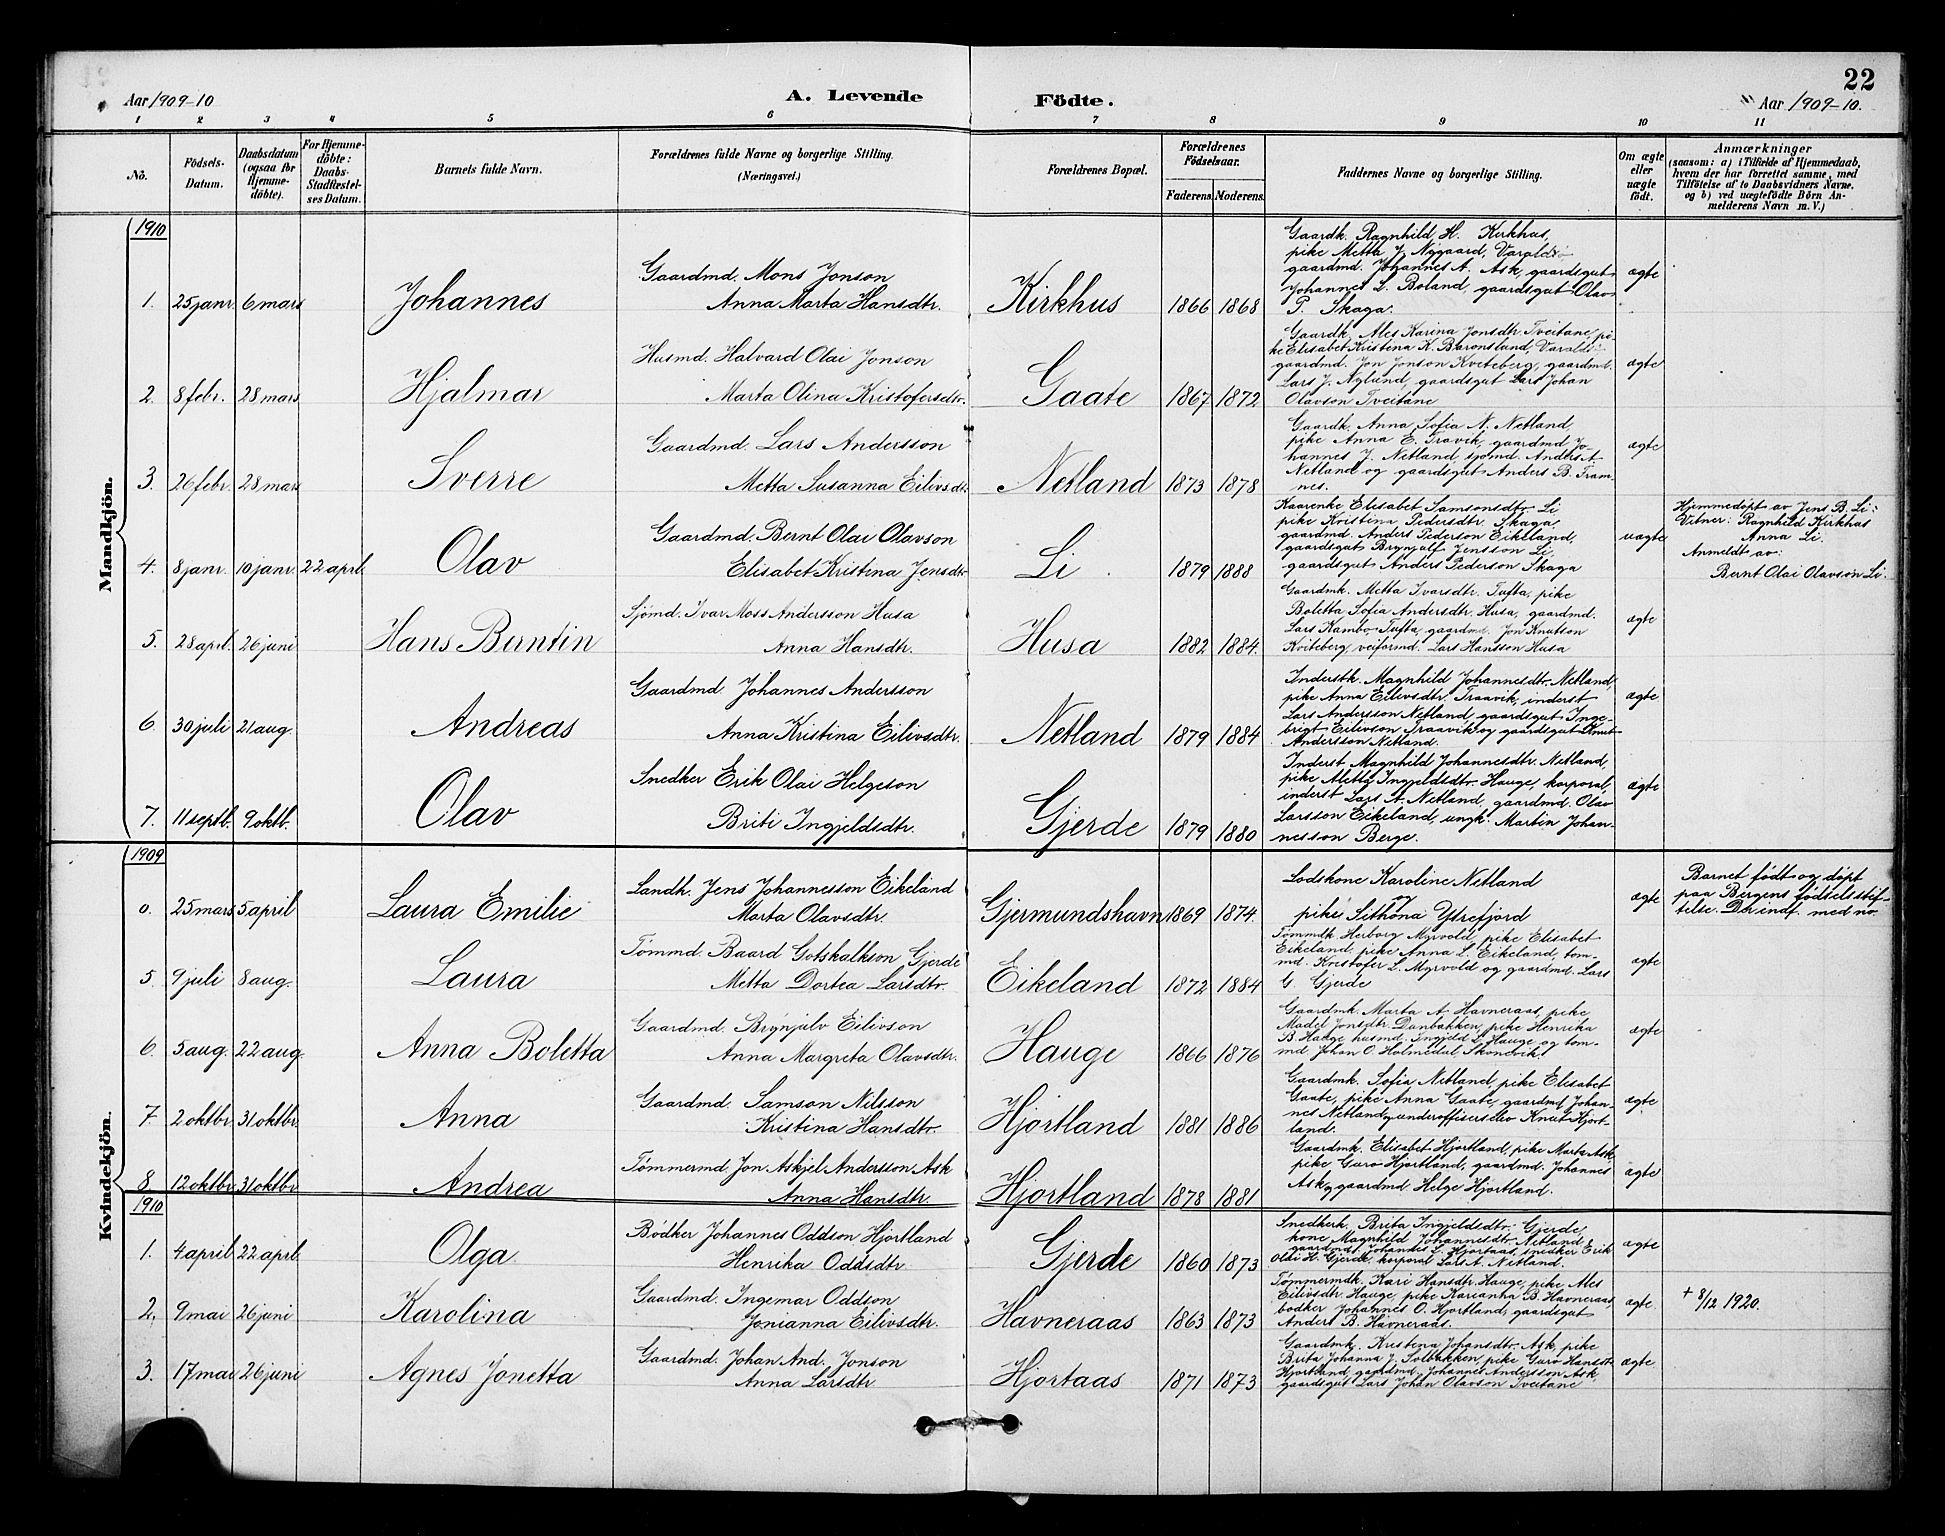 22
Aar 1909-10
A. Levende Födte.
Aar 1909-10.
1 2 3 4 5 6 7 8 9 10 11
No.
Födsels-Datum.
Daabsdatum (ogsaa for Hjemme-döbte).
For Hjemme-döbte: Daabs-Stadfæstel-ses Datum.
Barnets fulde Navn.
Forældrenes fulde Navne og borgerlige Stilling. (Næringsvei.)
Forældrenes Bopæl.
Forældrenes Födselsaar.
Faderens. Moderens.
Faddernes Navne og borgerlige Stilling.
Om ægte eller uægte födt.
Anmærkninger
(saasom: a) i Tilfælde af Hjemmedaab,
hvem der har forrettet samme, med
Tilföielse af to Daabsvidners Navne.
og b) ved uægtefödte Börn An-
melderens Navn m. V.)
Mandkjön.
1910
1. 25 janr. 6 mars Johannes
Gaardmd. Mons Jonson
Anna Marta Hansdtr.
Kirkhus 1866 1868
Gaardk. Ragnhild H. Kirkhus,
pike Metta J. Nygaard, Varaldsö
gaardmd. Johannes A. Ask, gaardsgut
Johannes L. Boland, gaardsgut Olav
P. Skaga.
ægte
2. 8 febr. 28 mars Hjalmar
Husmd. Halvard Olai Jonson
Marta Olina Kristofersdtr.
Gaate 1867 1872
Gaardk. Ales Karina Jonsdtr. Tveitane, pi-
ke Elisabet Kristina K. Baronslund, Varaldsö
gaardmd. Jon Jonson Kviteberg, gaardmd.
Lars J. Nylund, gaardsgut Lars Johan
Olavson Tveitane
ægte
3. 26 febr. 28 mars Sverre
Gaardmd. Lars Andersson
Metta Susanna Eilivsdtr.
Netland 1873 1878
Gaardk. Anna Sofia N. Netland,
pike Anna E. Travik, gaardmd Jo-
hannes J. Netland sjömd. Anders A
Netland og gaardsgut Anders B. Tram-
nes.
ægte
4. 8 janr. 10 janr. 22 april. Olav
Gaardmd. Bernt Olai Olavson
Elisabet Kristina Jensdtr
Li 1879 1888
Kaarenke Elisabet Samsonsdtr. Li
pike Kristina Pedersdtr. Skaga,
gaardmd. Anders Pederson Eikeland,
gaardsgut Brynjulf Jensson Li,
gaardsgut Anders Pederson Skaga
uægte
Hjemmedöpt av Jens B. Li.
Vitner: Ragnhild Kirkhus
Anna Li.
Anmeldt av:
Bernt Olai Olavson Li.
5. 28 april. 26 juni Hans Berntin
Sjømd. Ivar Moss Andersson Husa
Anna Hansdtr.
Husa 1882 1884.
Gaardmk. Metta Ivarsdtr. Tufta, pike
Boletta Sofia Andersdtr. Husa, gaardmd.
Lars Kambo Tufta, gaardmd. Jon Knutson
Kviteberg, veiformd. Lars Hansson Husa
ægte
6. 30 juli 21 aug. Andreas
Gaardmd. Johannes Andersson
Anna Kristina Eilivsdtr.
Netland 1879 1884
Inderstk. Magnhild Johannesdtr. Netland,
pike Anna Eilivsdtr. Traavik, inderst
Lars Andersson Netland, gaardsgut Inge-
brigt Eilivson Traavik og gaardsgut Knut
Andersson Netland.
ægte
7. 11 septb. 9 oktb. Olav
Snedker Erik Olai Helgeson
Brite Ingjeldsdtr.
Gjerde 1879 1880
Inderst Magnhild Johannesdtr. Netland,
pike Aletta Ingjeldsdtr. Hauge, korporal,
inderst Lars A. Netland, gaardmd. Olav
Larsson Eikeland, ungk. Martin Johan-
nesson Berge.
ægte
Kvindekjön.
1909
0. 25 mars 5 april Laura Emilie
Landh. Jens Johannesson Eikeland
Marta Olavsdtr.
Gjermundshavn 1869 1874.
Lodskone Karoline Netland
og
pike Sithöna Ytrefjord
ægte
Barnet født og døpt
paa Bergens fødselsstif-
telse. Der indf. med no.
5. 9 juli 8 aug. Laura
Tømmd. Baard Gotskalkson Gjerde
Metta Dortea Larsdtr.
Eikeland 1872 1884
Tømmdk Herborg Myrvold, pike Elisabet
Eikeland, pike Anna L. Eikeland, tøm-
md. Kristofer L. Myrvold og gaardmd. Lars
G. Gjerde
ægte
6. 5 aug. 22 aug. Anna Boletta
Gaardmd. Brynjulv Eilivson
Anna Margreta Olavsdtr.
Hauge 1866 1876
Gaardmk. Marta A Havneraas, pike
Madel Jonsdtr. Danbakken, pike Henrika
B. Hauge husmd. Ingjeld L. Hauge og tøm-
md Johan O. Holmedal Skonevik.
ægte
7. 2 oktbr. 31 oktbr. Anna
Gaardmd. Samson Nilsson
Kristina Hansdtr.
Hjortland 1881 1886
Gaardmk. Sofia Netland, pike Elisabet
Gaate, pike Anna Gaate, gaardmd Johan-
nes Netland og underoffiserselev Knut Hjort-
land.
ægte
8. 12 oktbr. 31 oktbr Andrea
Tømmermd. Jon Askjel Andersson Ask
Anna Hansdtr.
Hjortland 1878 1881
Gaardmk. Elisabet Hjortland, pike Marta Ask
pike, Guro Hjortland, gaardmd. Johannes
Ask og gaardmd Helge Hjortland.
ægte
1910
1. 4 april 22 april. Olga
Bødker Johannes Oddson Hjortland
Henrika Oddsdtr.
Gjerde 1860 1873
Snedkerk. Brita Ingjeldsdtr. Gjerde,
kone Magnhild Johannesdtr. Netland
gaardmd. Johannes L. Hjortaas, snedker Erik
Olai H. Gjerde, korporal Lars A. Netland.
ægte
2. 9 mai 26 juni Karolina
Gaardmd. Ingemar Oddson
Jonianna Eilivsdtr.
Havneraas 1863 1873
Tømmermdk. Kari Hansdtr. Hauge, pike Ales
Eilivsdtr. Hauge, pike Karianna B. Havneraas,
bødker Johannes O. Hjortland, gaardsgut
Anders B. Havneraas.
ægte
+ 8/12 1920.
3. 17 mai 26 juni Agnes Jonetta
Gaardmd. Johan And. Jonson
Anna Larsdtr.
Hjortaas 1871 1873
Gaardmk. Kristina Johansdtr. Ask, pike
Brita Johanna J. Solbakken, pike Guro Hansdtr
Hjortland, gaardmd. Johannes Andersson Ask,
gaardsgut Lars Johan Olavson Tveitane
ægte